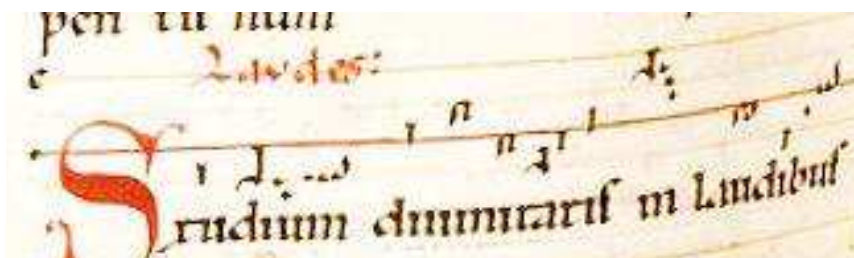 Laudes:
Studium diuinitatiſ in laudibuſ